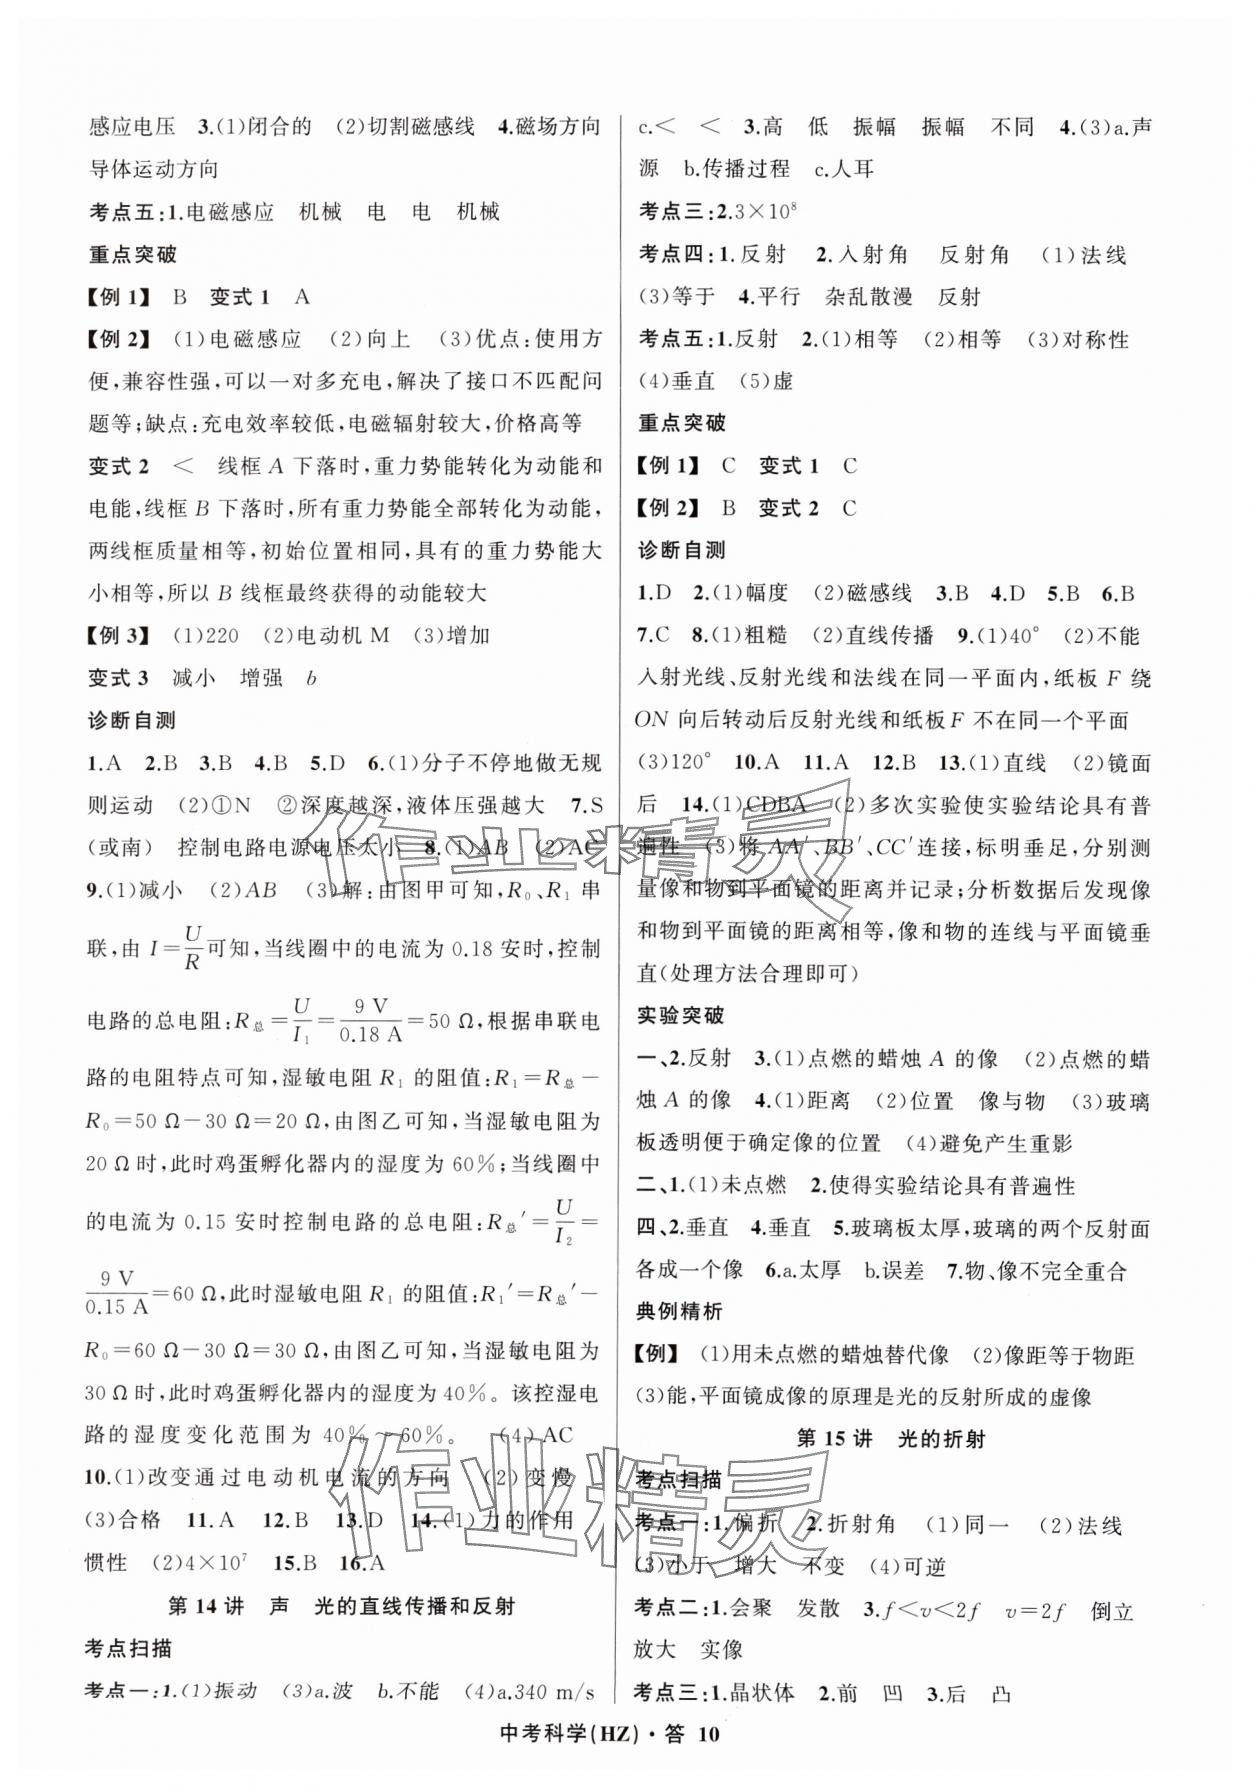 感应电压　3.(1)闭合的　(2)切割磁感线　4.磁场方向
导体运动方向
考点五:1.电磁感应　机械　电　电　机械
重点突破
【例1】　B　变式1　A
【例2】　(1)电磁感应　(2)向上　(3)优点:使用方
便,兼容性强,可以一对多充电,解决了接口不匹配问
题等;缺点:充电效率较低,电磁辐射较大,价格高等
变式2　＜　线框A下落时,重力势能转化为动能和
电能,线框B下落时,所有重力势能全部转化为动能,
两线框质量相等,初始位置相同,具有的重力势能大
小相等,所以B线框最终获得的动能较大
【例3】　(1)220　(2)电动机M　(3)增加
变式3　减小　增强　b
诊断自测
1.A　2.B　3.B　4.B　5.D　6.(1)分子不停地做无规
则运动　(2)①N　②深度越深,液体压强越大　7.S
(或南)　控制电路电源电压太小　8.(1)AB　(2)AC
9.(1)减小　(2)AB　(3)解:由图甲可知,R₀、R₁串
联,由I=U/R可知,当线圈中的电流为0.18安时,控制
电路的总电阻:R总=U/I₁=9 V/0.18 A=50 Ω,根据串联电
路的电阻特点可知,湿敏电阻R₁的阻值:R₁=R总－
R₀=50 Ω－30 Ω=20 Ω,由图乙可知,当湿敏电阻为
20 Ω时,此时鸡蛋孵化器内的湿度为60%;当线圈中
的电流为0.15安时控制电路的总电阻:R总′=U/I₂=
9 V/0.15 A=60 Ω,此时湿敏电阻R₁的阻值:R₁′=R总′－
R₀=60 Ω－30 Ω=30 Ω,由图乙可知,当湿敏电阻为
30 Ω时,此时鸡蛋孵化器内的湿度为40%。该控湿电
路的湿度变化范围为40%～60%。　(4)AC
10.(1)改变通过电动机电流的方向　(2)变慢
(3)合格　11.A　12.B　13.D　14.(1)力的作用
惯性　(2)4×10⁷　15.B　16.A
第14讲　声　光的直线传播和反射
考点扫描
考点一:1.(1)振动　(3)a.波　b.不能　(4)a.340 m/s
c.＜　＜　3.高　低　振幅　振幅　不同　4.(3)a.声
源　b.传播过程　c.人耳
考点三:2.3×10⁸
考点四:1.反射　2.入射角　反射角　(1)法线
(3)等于　4.平行　杂乱散漫　反射
考点五:1.反射　2.(1)相等　(2)相等　(3)对称性
(4)垂直　(5)虚
重点突破
【例1】　C　变式1　C
【例2】　B　变式2　C
诊断自测
1.D　2.(1)幅度　(2)磁感线　3.B　4.D　5.B　6.B
7.C　8.(1)粗糙　(2)直线传播　9.(1)40°　(2)不能
入射光线、反射光线和法线在同一平面内,纸板F绕
ON向后转动后反射光线和纸板F不在同一个平面
(3)120°　10.A　11.A　12.B　13.(1)直线　(2)镜面
后　14.(1)CDBA　(2)多次实验使实验结论具有普
遍性　(3)将AA′、BB′、CC′连接,标明垂足,分别测
量像和物到平面镜的距离并记录;分析数据后发现像
和物到平面镜的距离相等,像和物的连线与平面镜垂
直(处理方法合理即可)
实验突破
一、2.反射　3.(1)点燃的蜡烛A的像　(2)点燃的蜡
烛A的像　4.(1)距离　(2)位置　像与物　(3)玻璃
板透明便于确定像的位置　(4)避免产生重影
二、1.(1)未点燃　2.使得实验结论具有普遍性
四、2.垂直　4.垂直　5.玻璃板太厚,玻璃的两个反射面
各成一个像　6.a.太厚　b.误差　7.物、像不完全重合
典例精析
【例】　(1)用未点燃的蜡烛替代像　(2)像距等于物距
(3)能,平面镜成像的原理是光的反射所成的虚像
第15讲　光的折射
考点扫描
考点一:1.偏折　2.折射角　(1)同一　(2)法线
(3)小于　增大　不变　(4)可逆
考点二:1.会聚　发散　3.f＜v＜2f　v=2f　倒立
放大　实像
考点三:1.晶状体　2.前　凹　3.后　凸
中考科学(HZ)·答　10
作业精灵
作业精灵